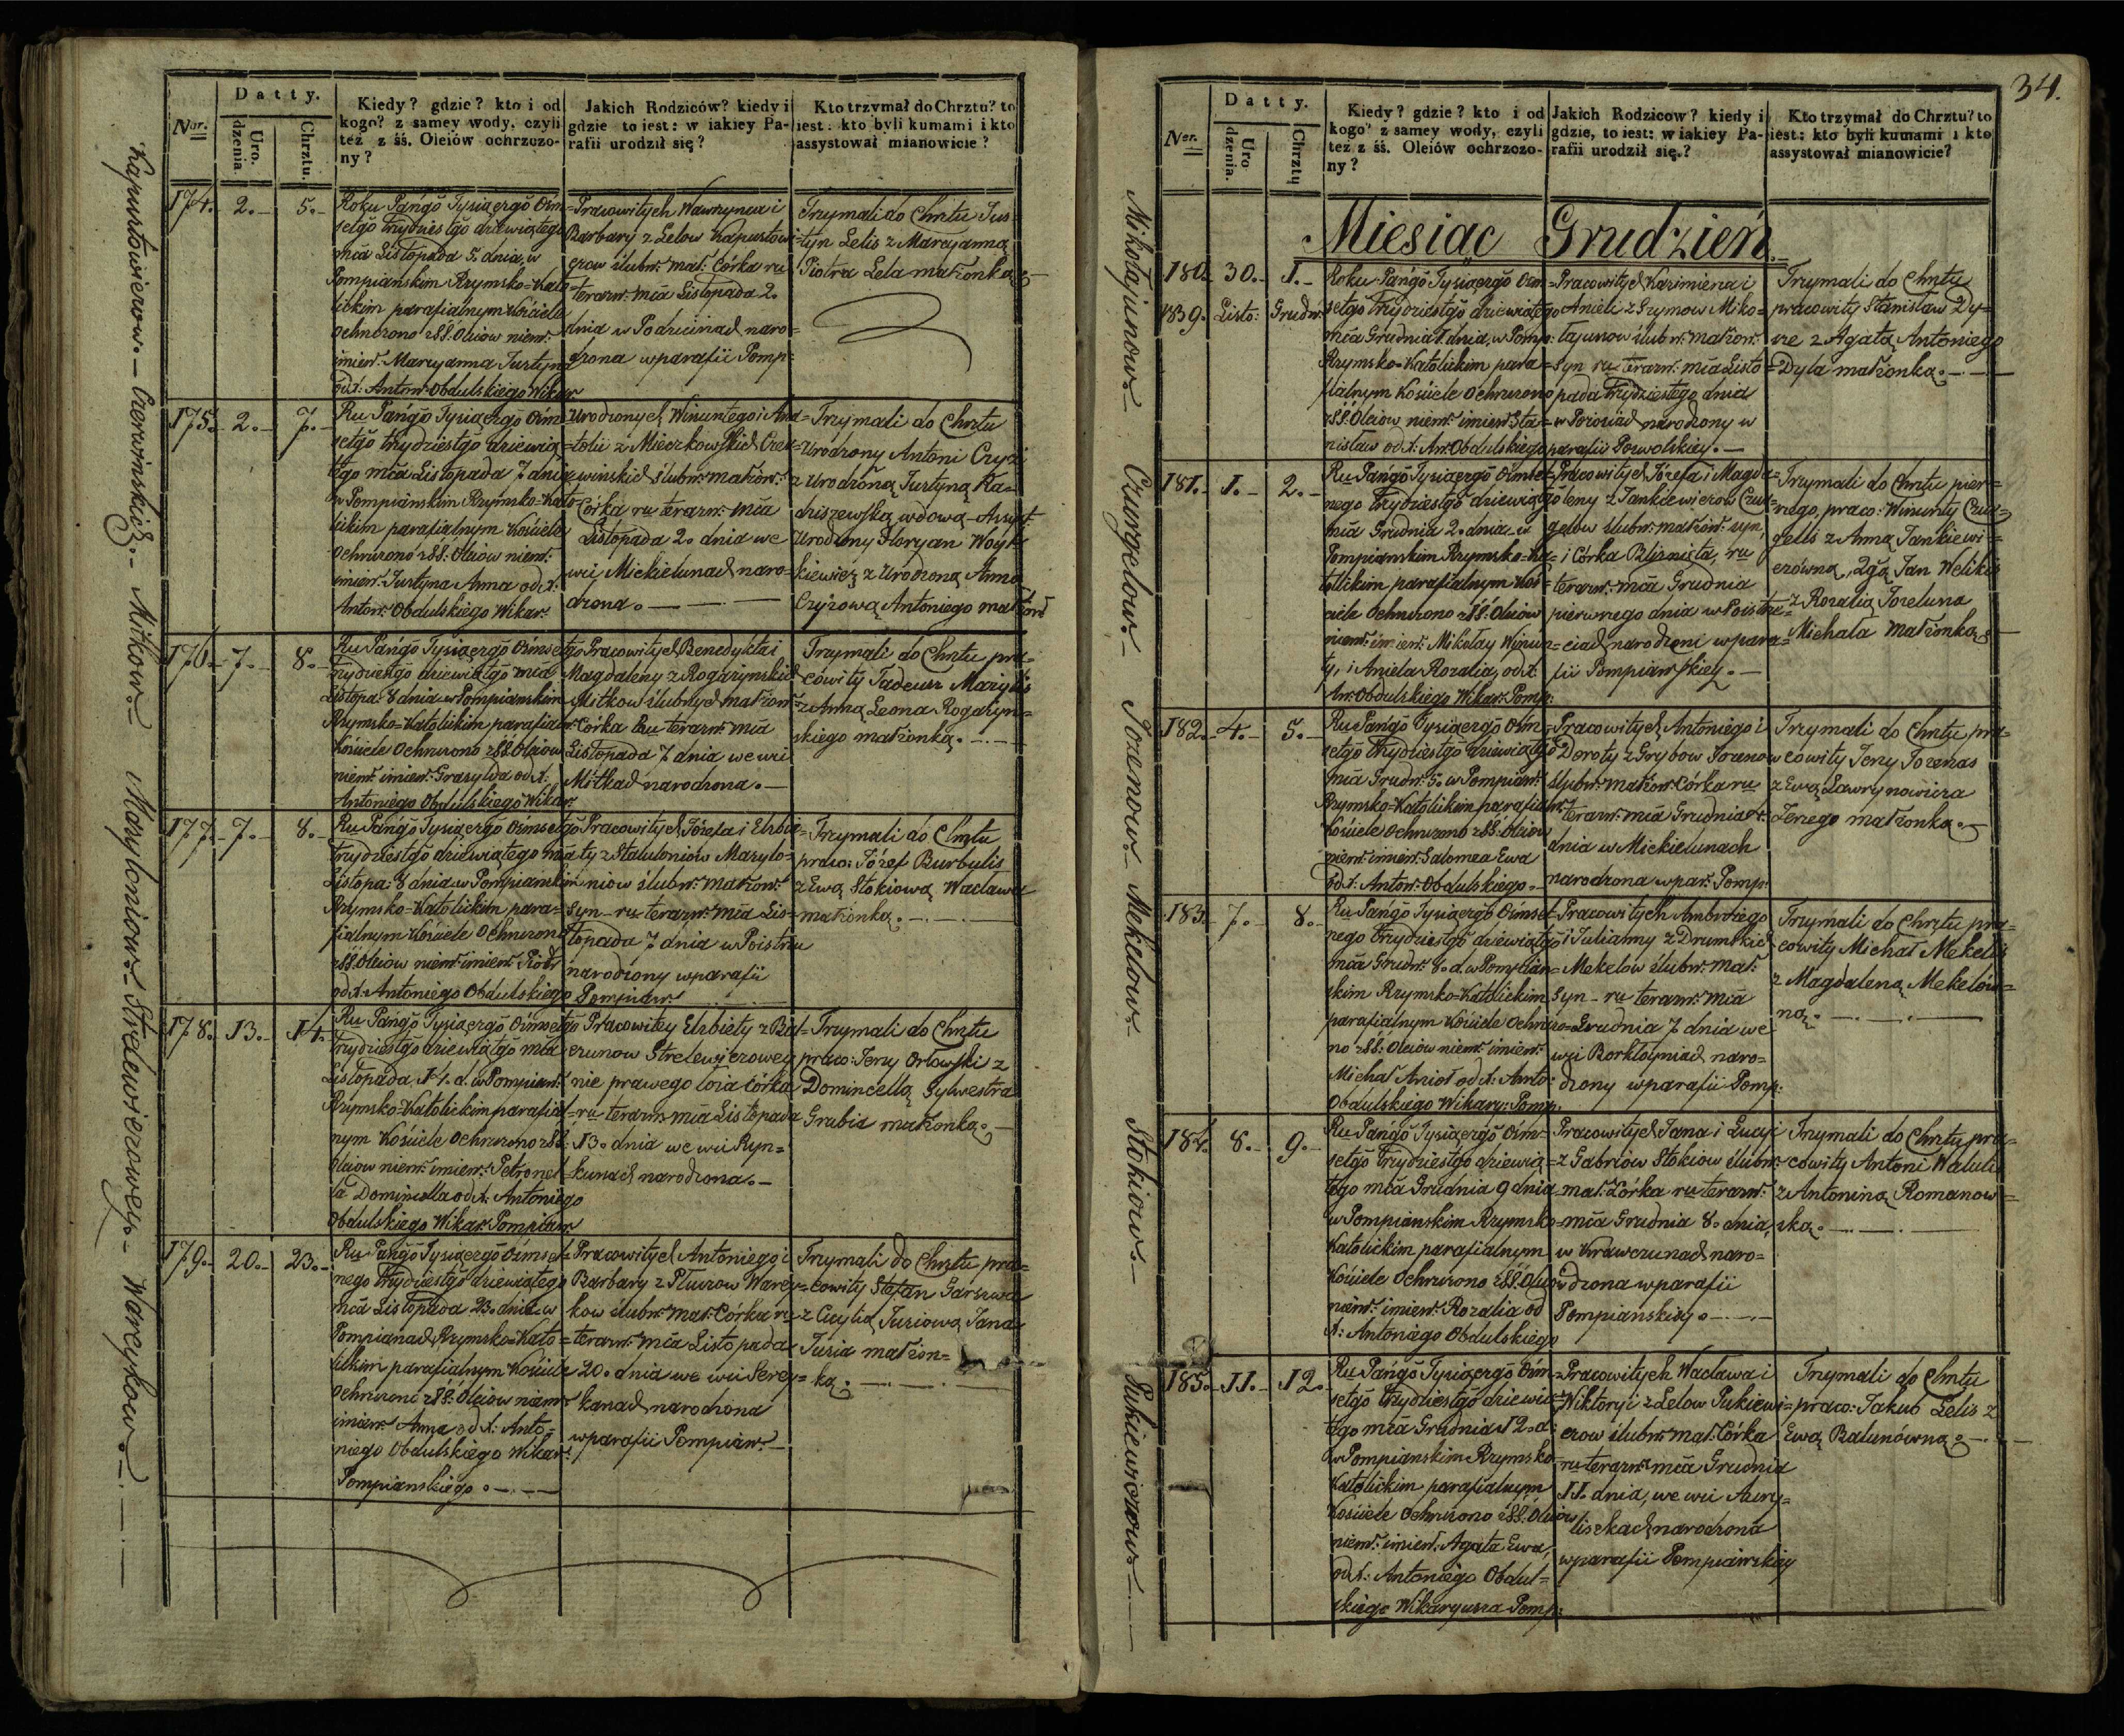 Nor.
Datty.
Uro. dzenia
Chrztu.
Kiedy? gdzie? kto i od
kogo? z samey wody, czyli
też z śś. Oleiów ochrzczo-
ny?
Jakich Rodziców? kiedy i
gdzie to iest: w iakiey Pa-
rafii urodził się?
Kto trzymał do Chrztu? to
iest: kto byli kumami i kto
assystował mianowicie?
Kapustowiczow.— Czerwinskich.— Mitkow.— Maryloniow.— Strelewiczowey.— Wareykow.—
174. 2.— 5.—
Roku Pańgo Tysiącrgo Ośm=
setgo trzydziestgo dziewiątego
mca Listopada 5. dnia, w
Pompianskim Rzymsko=Kato
lickim parafialnym Kościele
Ochrzczono z SS. Oleiow niem:
imien: Maryanna Justyna
od X: Anton: Obdulskiego Wikar:
Pracowitych Wawrzynca i
Barbary z Lelow Kapustowi=
czow ślubn: mał: Córka ru
terazn: mca Listopada 2.
dnia w Podziuniach naro=
dzona w parafii Pomp:
Trzymali do Chrztu Jus=
tyn Lelis z Maryanną
Piotra Lela małżonką.—
175. 2.— 7.—
Ru Pańgo Tysiącrgo Ośm
setgo trzydziestgo dziewią=
tego mca Listopada 7 dnia
w Pompianskim Rzymsko=Kato
lickim parafialnym Kościele
Ochrzczono z SS. Oleiow niem:
imien: Justyna Anna od X:
Anton: Obdulskiego Wikar:
Urodzonych Wincentego i Ana=
tolii z Mieczkowskich Czer=
wińskich ślubn: małżon:
Córka ru terazn: mca
Listopada 2. dnia we
wsi Mickieliunach naro=
dzona.—
Trzymali do Chrztu
Urodzony Antoni Czyż
z Urodzoną Justyną Ra=
dziszewską wdową—Assyst:
Urodzony Floryan Woyt=
kiewicz z Urodzoną Anną
Czyżową Antoniego małżon:
176. 7.— 8.—
Ru Pańgo Tysiącrgo Ośmsetgo
trzydziestgo dziewiątgo mca
Listopa: 8 dnia w Pompianskim
Rzymsko=Katolickim parafial:
Kościele Ochrzczono z SS. Oleiow
niem: imien: Grasylda od X:
Antoniego Obdulskiego Wikar:
Pracowitych Benedykta i
Magdaleny z Rogażynskich
Mitkow ślubnych małżon:
Córka ru terazn: mca
Listopada 7 dnia we wsi
Mitkach narodzona.—
Trzymali do Chrztu pra=
cowity Tadeusz Marylis
z Anną Leona Rogażyn=
skiego małżonką.—
177. 7.— 8.—
Ru Pańgo Tysiącrgo Ośmsetgo
trzydziestgo dziewiątego mca
Listopa: 8 dnia w Pompianskim
Rzymsko=Katolickim para=
fialnym Kościele Ochrzczono
z SS. Oleiow niem: imien: Piotr
od X: Antoniego Obdulskiego
Pracowitych Józefa i Elzbie=
ty z Staluloniow Marylo=
niow ślubn: małżon:
Syn— ru terazn: mca Lis=
topada 7 dnia w Poistru
narodzony w parafii
Pompian:
Trzymali do Chrztu
praco: Józef Burbulis
z Ewą Stokiową Wacława
małżonką.—
178. 13.— 14.
Ru Pańgo Tysiącrgo Ośmsetgo
trzydziestgo dziewiątgo mca
Listopada 14. d. w Pompian:
Rzymsko=Katolickim parafial=
nym Kościele Ochrzczono z SS:
Oleiow niem: imien: Petronel=
la Domincella od X: Antoniego
Obdulskiego Wikar: Pompian:
Pracowitey Elzbiety z Bal=
czunow Strelewiczowey
nie prawego łoża Córka
ru terazn: mca Listopada
13. dnia we wsi Ryn=
kunach narodzona.—
Trzymali do Chrztu
praco: Jerzy Orłowski z
Domincellą Sylwestra
Grubia małżonką.—
179. 20.— 23.—
Ru Pańgo Tysiącrgo Ośmset=
nego trzydziestgo dziewiątego
mca Listopada 23. dnia w
Pompianach Rzymsko=Kato=
lickim parafialnym Kościele
Ochrzczono z SS: Oleiow niem:
imien: Anna od X: Anto=
niego Obdulskiego Wikar:
Pompianskiego.—
Pracowitych Antoniego i
Barbary z Pluczow Warey=
kow ślubn: mał: Córka ru
terazn: mca Listopada
20. dnia we wsi Serey=
kanach narodzona
w parafii Pompian:—
Trzymali do Chrztu pra=
cowity Stefan Garszwa
z Cycylią Jusiową Jana
Jusia małżon=
ką.—
34.
Nor.
Datty.
Uro dzenia.
Chrztu
Kiedy? gdzie? kto i od
kogo? z samey wody, czyli
też z śś. Oleiów ochrzczo-
ny?
Jakich Rodzicow? kiedy i
gdzie, to iest: w iakiey Pa-
rafii urodził się?
Kto trzymał do Chrztu? to
iest: kto byli kumami i kto
assystował mianowicie?
Mikołajunow.— Czurgelow.— Jozenow.— Mekelow.— Stokiow.— Pukiewiczow.—
Miesiąc Grudzień.
180. 30.— 1.—
1839. Listo: Grudn:
Roku Pańgo Tysiącrgo Ośm=
setgo trzydziestgo dziewiątego
mca Grudnia 1 dnia, w Pomp:
Rzymsko=Katolickim para=
fialnym Kościele Ochrzczono
z SS. Oleiow niem: imien: Sta=
nisław od X: An: Obdulskiego
Pracowitych Kazimierza i
Anieli z Grymow Miko=
łajunow ślubn: małżon:
Syn ru terazn: mca Listo
pada trzydziestego dnia
w narodzony w
parafii Poswolskiey.—
Trzymali do Chrztu
pracowity Stanisław Dy=
le z Agatą Antoniego
Dyla małżonką.—
181. 1.— 2.—
Ru Pańgo Tysiącrgo Ośmset=
nego trzydziestgo dziewiątgo
mca Grudnia 2. dnia w
Pompianskim Rzymsko=Ka=
tolickim parafialnym Koś=
ciele Ochrzczono z SS. Oleiow
niem: imien: Mikołay Wincen=
ty, i Aniela Rozalia, od X:
An: Obdulskiego Wikar: Pomp:
Pracowitych Józefa i Magda=
leny z Jankiewiczow Czur=
gelow ślubn: małżon: Syn,
i Córka Bliznięta, ru
terazn: mca Grudnia
pierwszego dnia w Poistrze=
ciach narodzeni w para=
fii Pompianskiey.—
Trzymali do Chrztu pier=
wszego, praco: Wincenty Czur=
gelis z Anną Jankiewi=
czówną, 2gą Jan Welikis
z Rozalią Jozeluna
Michała małżonką.—
182. 4.— 5.—
Ru Pańgo Tysiącrgo Ośm=
setgo trzydziestgo dziewiątgo
mca Grudn: 5. w Pompian:
Rzymsko=Katolickim parafial:
Kościele Ochrzczono z SS. Oleiow
niem: imien: Salomea Ewa
od X: Anton: Obdulskiego.—
Pracowitych Antoniego i
Doroty z Grybow Jozenow
ślubn: małżon: Córka ru
terazn: mca Grudnia 4.
dnia w Mickieliunach
narodzona w par: Pomp:
Trzymali do Chrztu pra=
cowity Jerzy Jozenas
z Ewą Ławrynowicza
Jerzego małżonką.—
183. 7.— 8.—
Ru Pańgo Tysiącrgo Ośmset=
nego trzydziestgo dziewiątgo
mca Grudn: 8. d. w Pompian=
skim Rzymsko=Katolickim
parafialnym Kościele Ochrzczo=
no z SS: Oleiow niem: imien:
Michał Anioł od X: Anto:
Obdulskiego Wikary: Pomp:
Pracowitych Ambrożego
i Julianny z Drumskich
Mekelow ślubn: mał:
Syn— ru terazn: mca
Grudnia 7 dnia we
wsi Borkłoyniach naro=
dzony w parafii Pomp:
Trzymali do Chrztu pra=
cowity Michał Mekelis
z Magdaleną Mekelów=
ną.—
184. 8.— 9.—
Ru Pańgo Tysiącrgo Ośm=
setgo trzydziestgo dziewią=
tego mca Grudnia 9 dnia
w Pompianskim Rzymsko=
Katolickim parafialnym
Kościele Ochrzczono z SS. Oleiow
niem: imien: Rozalia od
X: Antoniego Obdulskiego
Pracowitych Jana i Łucyi
z Gabriow Stokiow ślubn:
mał: Córka ru terazn:
mca Grudnia 8. dnia,
w Krawczunach naro=
dzona w parafii
Pompianskiey.—
Trzymali do Chrztu pra=
cowity Antoni Walulis
z Antoniną Romanow=
ską.—
185. 11.— 12.
Ru Pańgo Tysiącrgo Ośm=
setgo trzydziestgo dziewią=
tego mca Grudnia 12. d:
w Pompianskim Rzymsko=
Katolickim parafialnym
Kościele Ochrzczono z SS. Oleiow
niem: imien: Agata Ewa,
od X: Antoniego Obdul=
skiego Wikaryusza Pomp:
Pracowitych Wacława i
Wiktoryi z Lelow Pukiewi=
czow ślubn: mał: Córka
ru terazn: mca Grudnia
11. dnia, we wsi Aury=
liszkach narodzona
w parafii Pompianskiey
Trzymali do Chrztu
praco: Jakub Lelis z
Ewą Balunówną.—